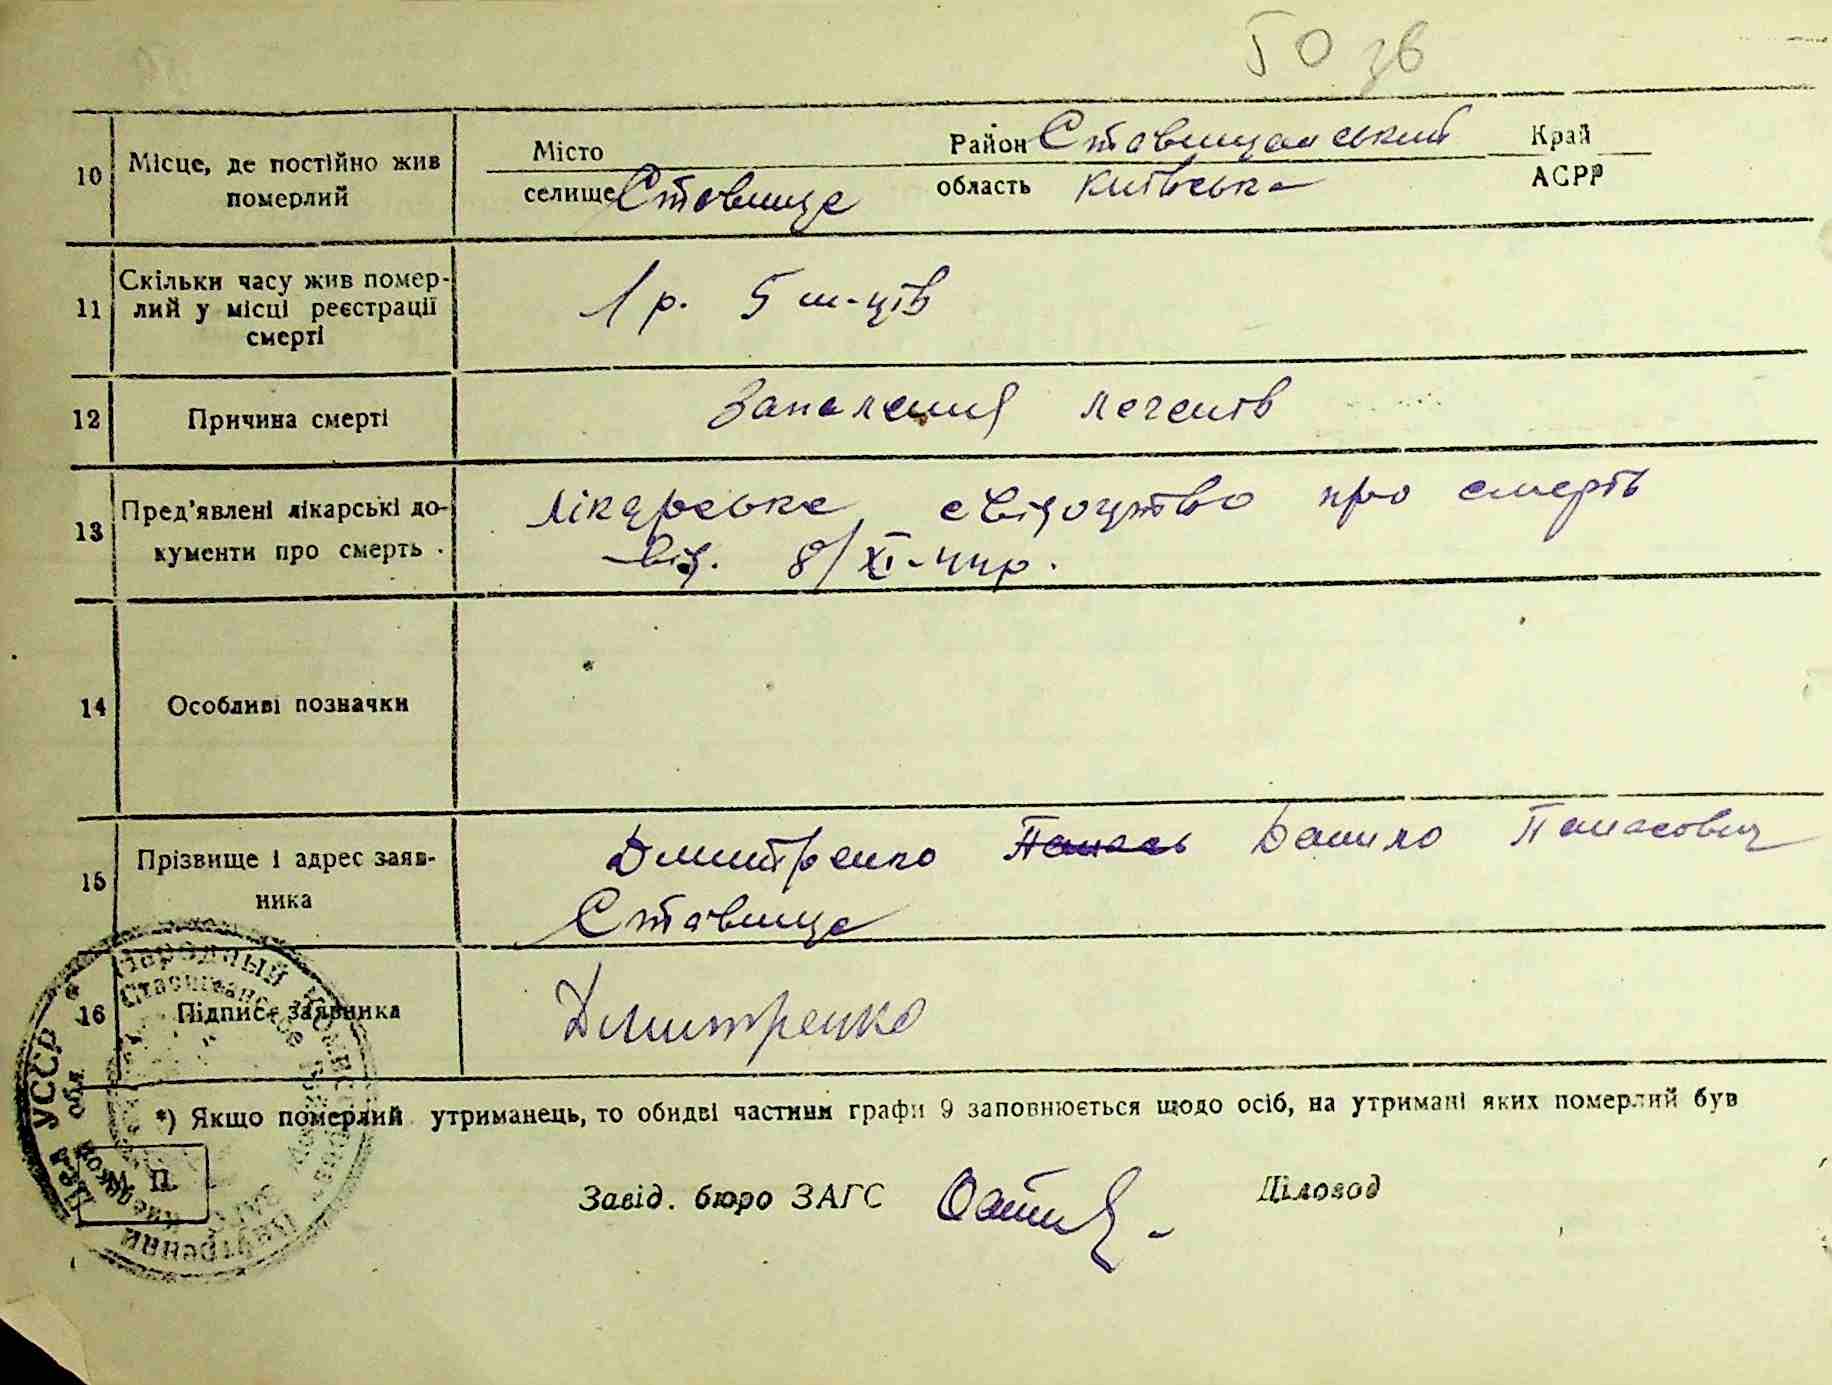 50 зв
10 Місце, де постійно жив померлий Місто Район Ставищанський Край
селище Ставище область Київська АСРР
11 Скільки часу жив помер-
лий у місці реєстрації
смерті
1 р. 5 м-ців
12 Причина смерті Запалення легенів
13 Пред'явлені лікарські до-
кументи про смерть
Лікарське свідоцтво про смерть
від. 8/XI-44р.
14 Особливі позначки
15 Прізвище і адрес заяв-
ника
Дмитренко Панась Данило Панасович
Ставище
16 Підпис заявника Дмитренко
*) Якщо померлий утриманець, то обидві частини графи 9 заповнюється щодо осіб, на утримані яких померлий був
М. П.
Завід. бюро ЗАГС Діловод
Народный Комиссариат Внутренних Дел УССР